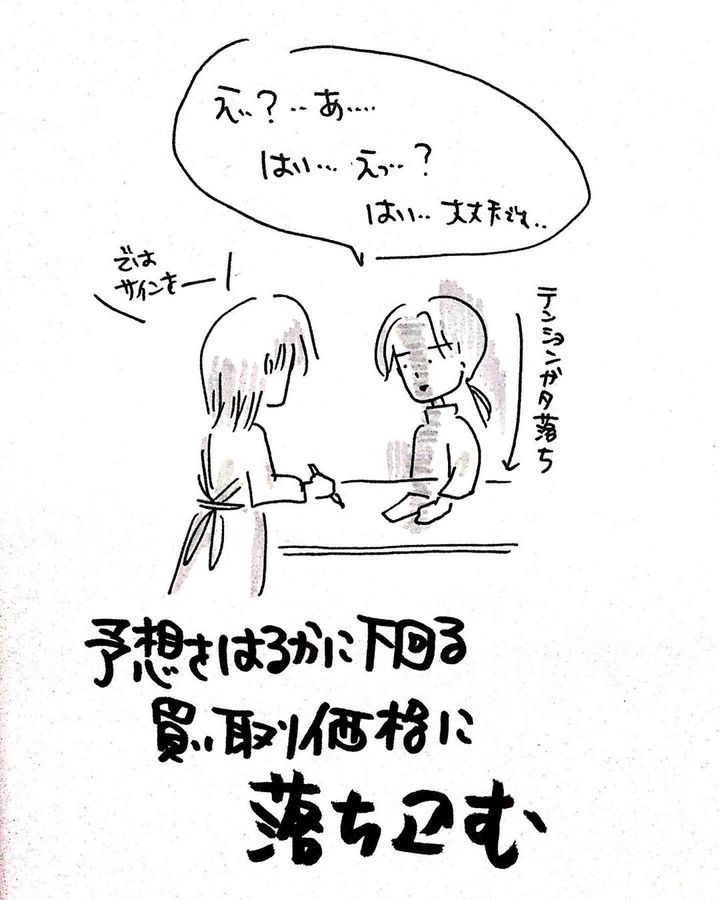 えっ？‥あ‥‥
はい… えっ‥？
はい‥ 大丈夫です‥
では
サインをー
テンションガタ落ち
予想をはるかに下回る
買い取り価格に
落ち込む